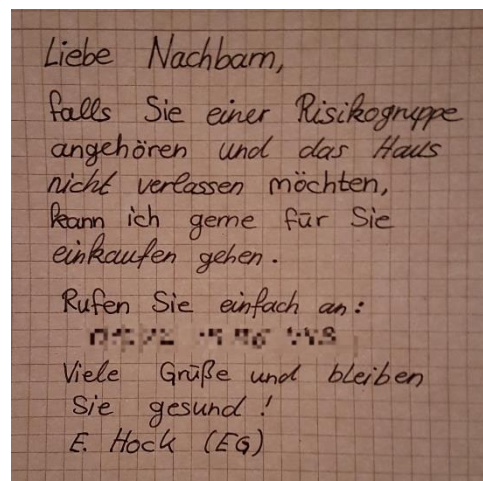 Liebe Nachbarn,
falls Sie einer Risikogruppe
angehören und das Haus
nicht verlassen möchten,
kann ich gerne für Sie
einkaufen gehen.
Rufen Sie einfach an:
Viele Grüße und bleiben
Sie gesund!
E. Hock (EG)